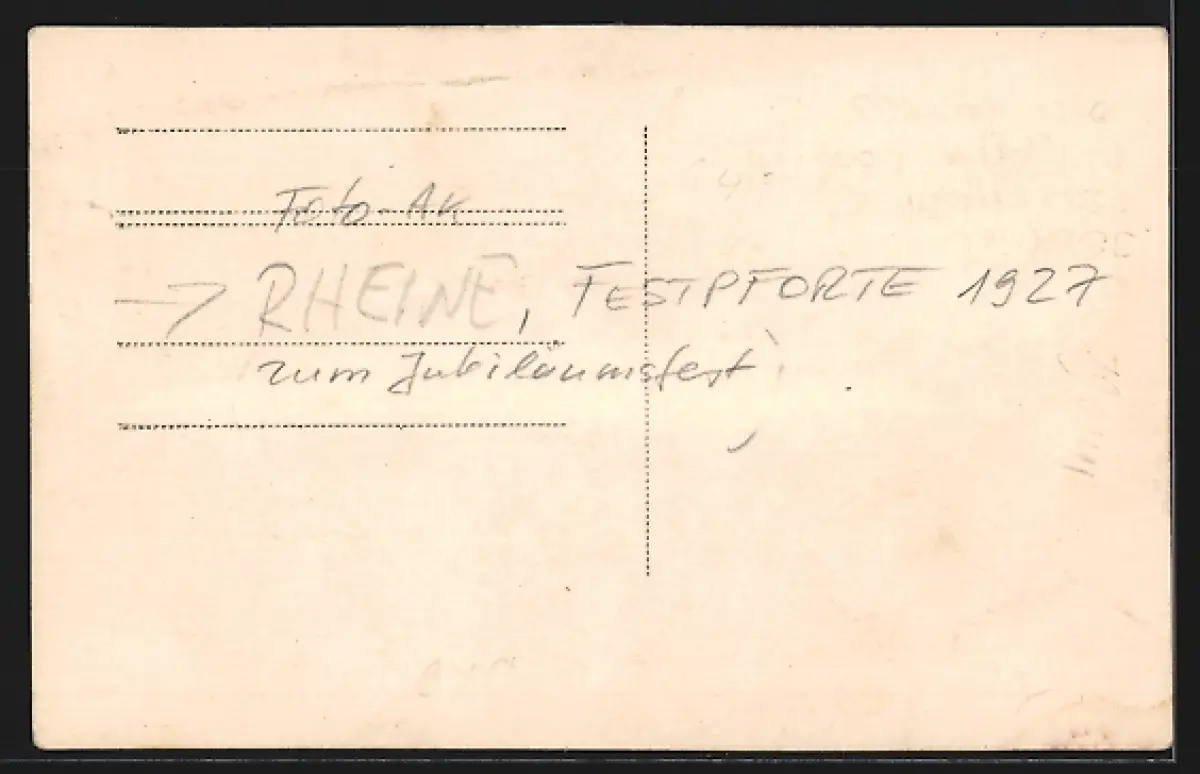 Foto-AK
→ RHEINE, FESTPFORTE 1927
zum Jubiläumsfest